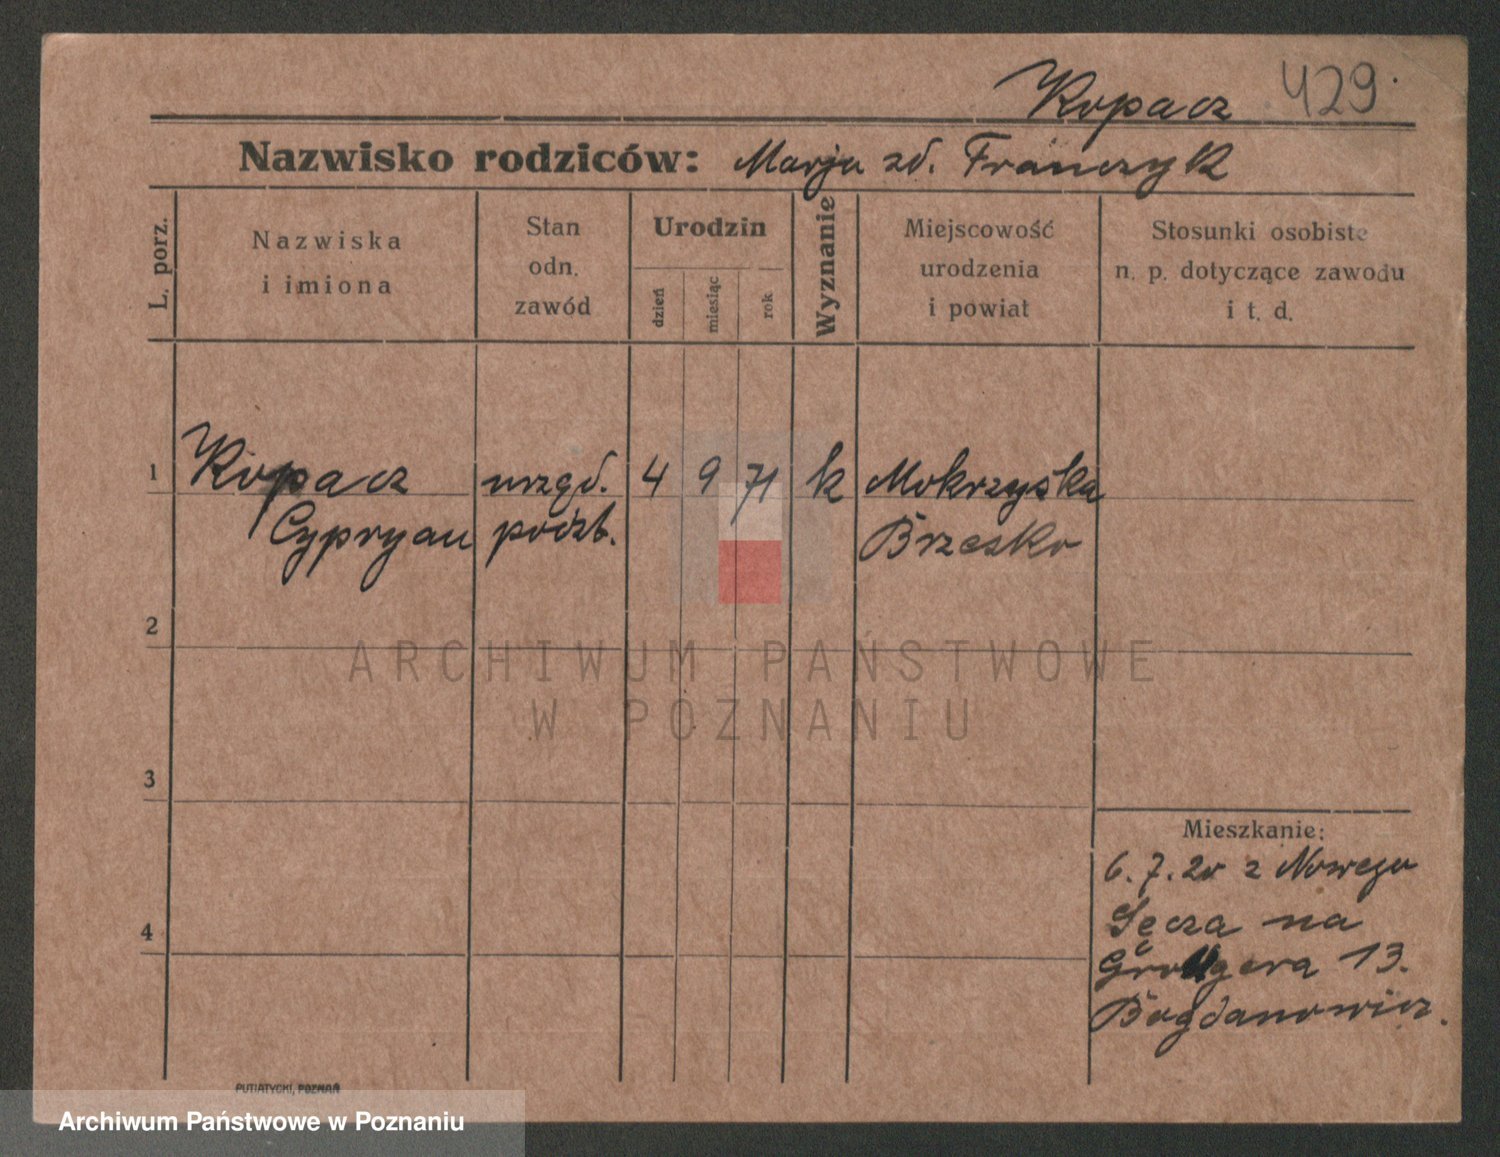 Kopacz 429.
Nazwisko rodziców: Marja zd. Franczyk
L. porz.
Nazwiska
i imiona
Stan
odn.
zawód
Urodzin
dzień
miesiąc
rok
Wyznanie
Miejscowość
urodzenia
i powiat
Stosunki osobiste
n. p. dotyczące zawodu
i t. d.
1 Kopacz urzęd. 4 9 71 k Mokrzyska
Cypryan Brzesko
2
ARCHIWUM PAŃSTWOWE
W POZNANIU
3
Mieszkanie:
6.7.20 z Nowego
4 Sącza na
13.
Bogdanowicz.
PUTIATYCKI, POZNAŃ
Archiwum Państwowe w Poznaniu